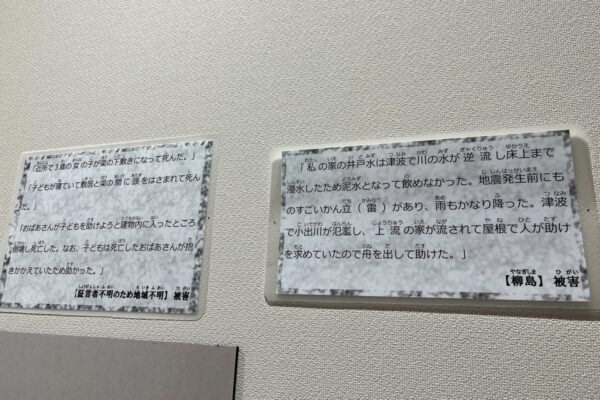 「近所で3歳の女の子が梁の下敷きになって死んだ。」
「子どもが寝ていて敷居と梁の間に頭をはさまれて死んだ。」
「おばあさんが子どもを助けようと建物内に入ったところ
崩壊し死亡した。なお、子どもは死亡したおばあさんが抱
きかかえていたため助かった。」
【証言者不明のため地域不明】被害
「私の家の井戸水は津波で川の水が逆流し床上まで
浸水したため泥水となって飲めなかった。地震発生前にも
のすごいかん立（雷）があり、雨もかなり降った。津波
で小出川が氾濫し、上流の家が流されて屋根で人が助け
を求めていたので舟を出して助けた。」
【柳島】被害